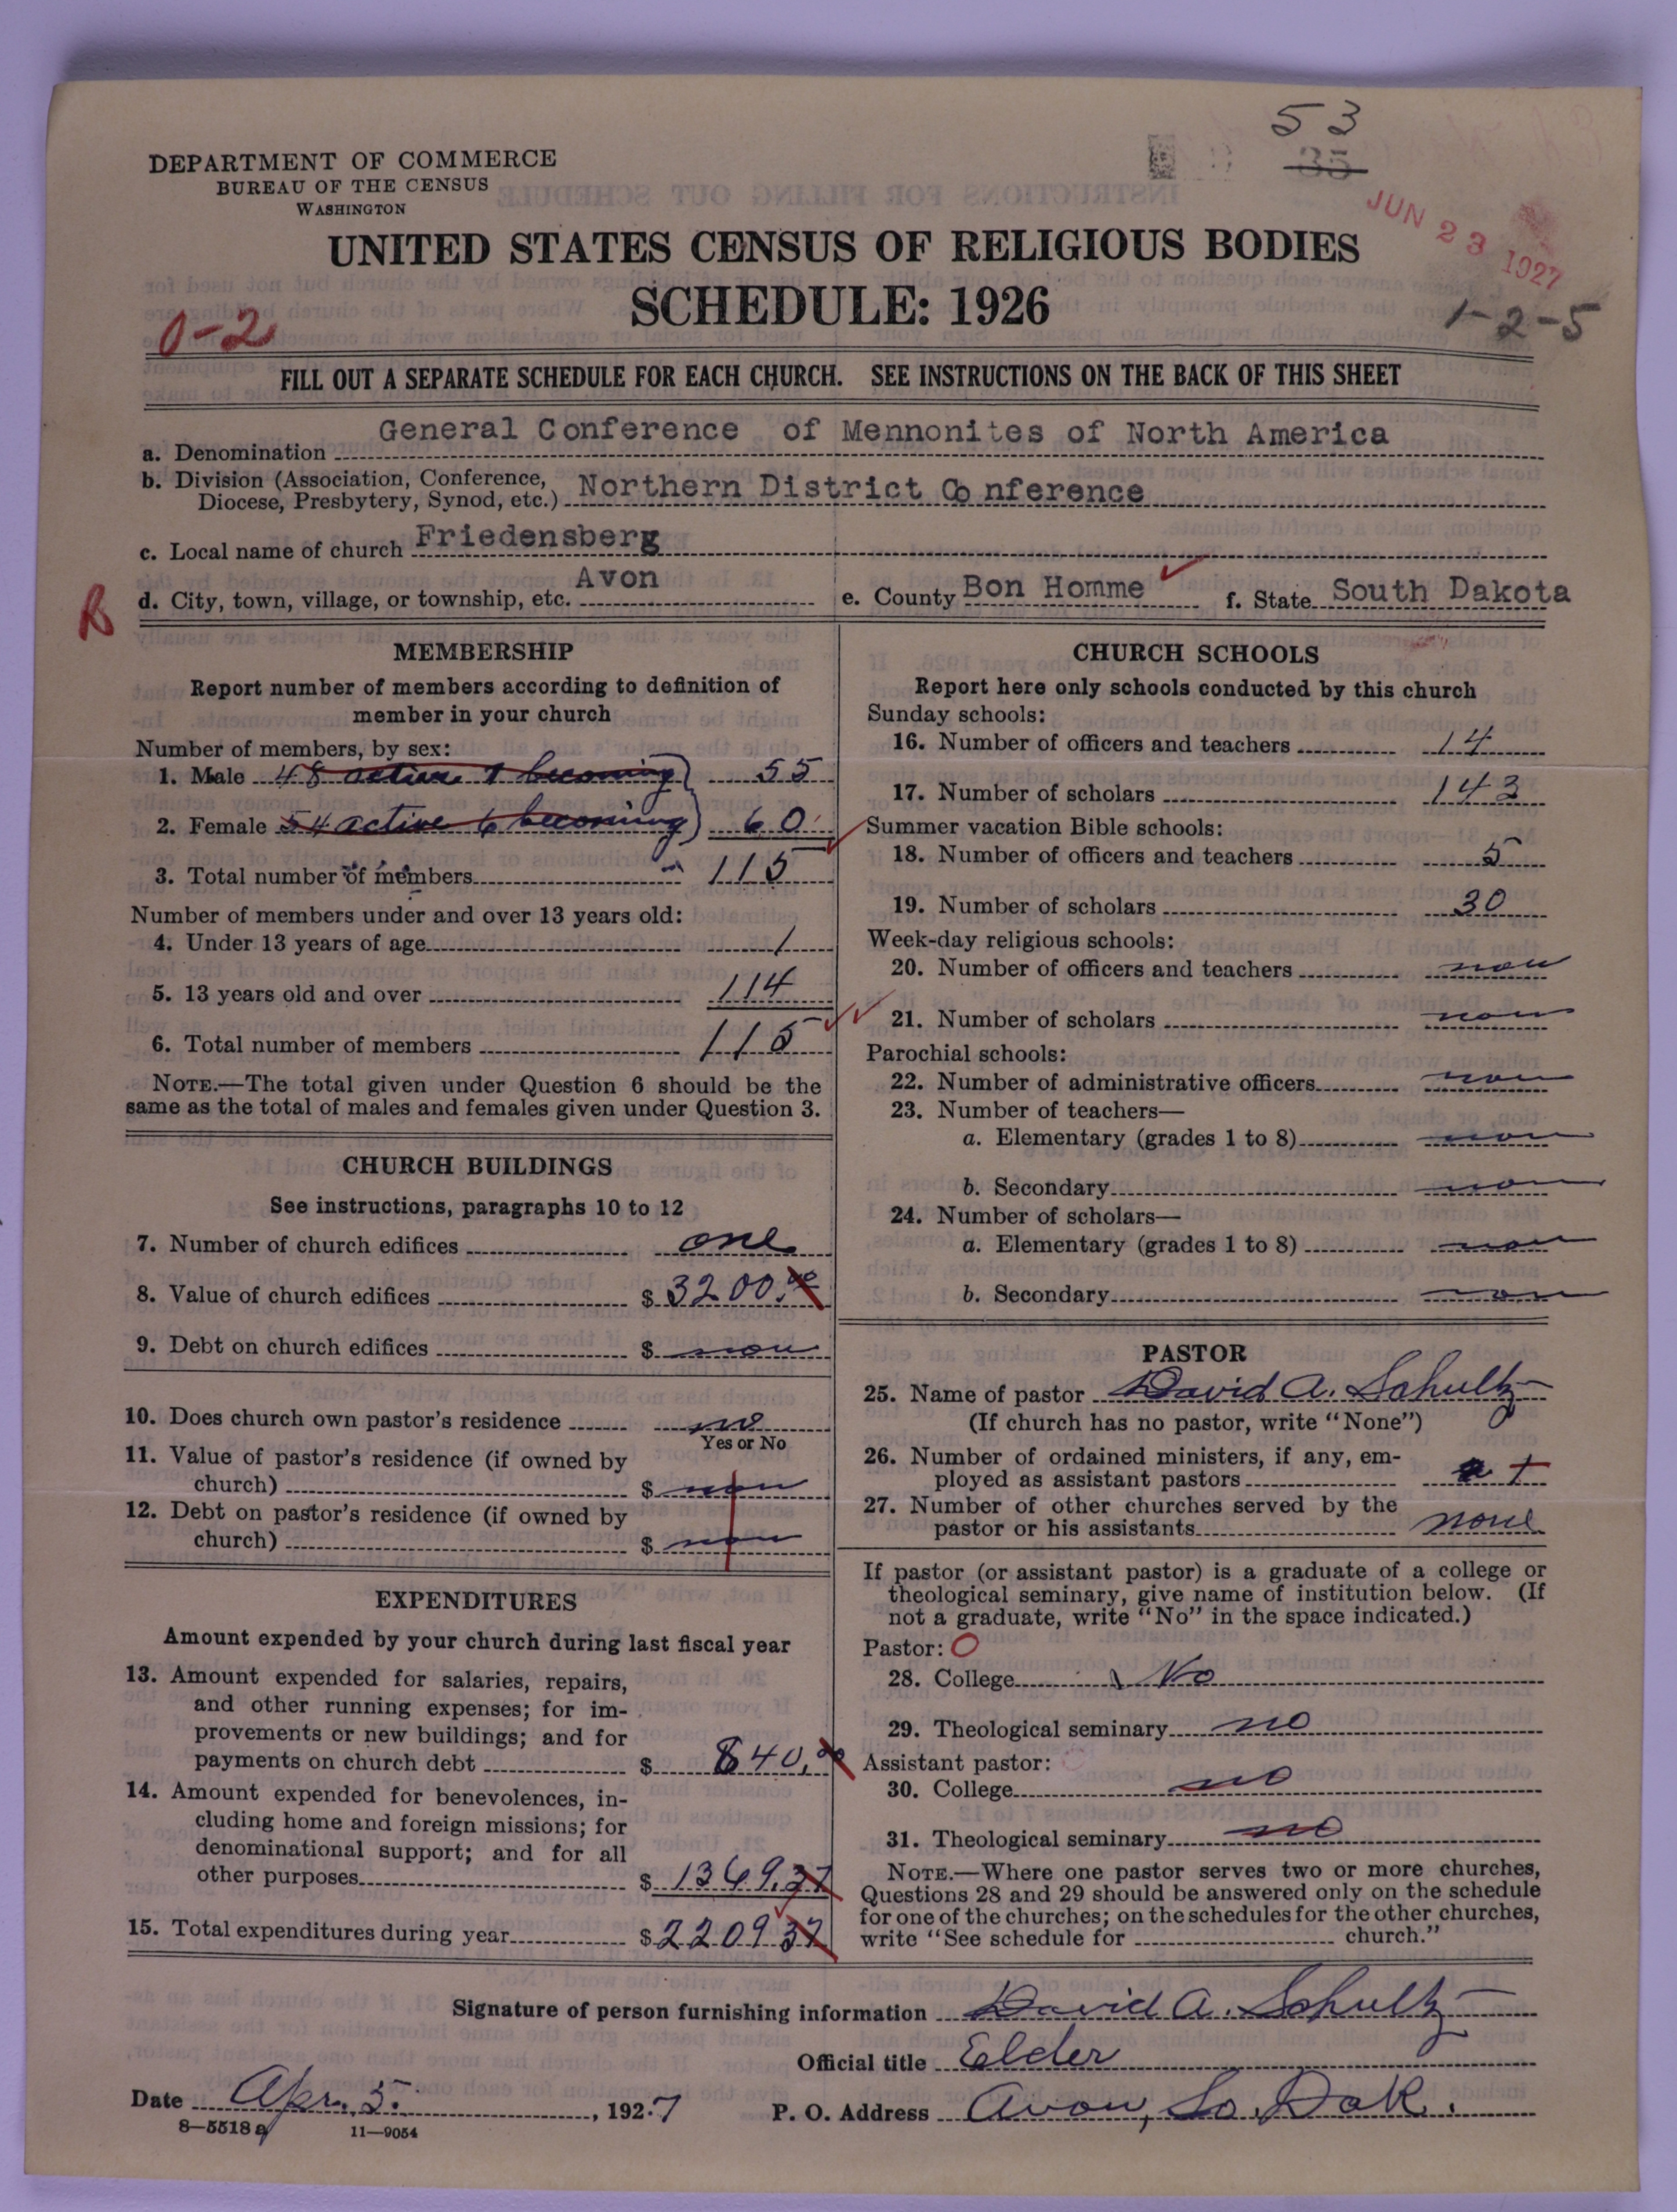 53
35
DEPARTMENT OF COMMERCE
BUREAU OF THE CENSUS
WASHINGTON
JUN 23 1927
UNITED STATES CENSUS OF RELIGIOUS BODIES
SCHEDULE: 1926
0-2
1-2-5
FILL OUT A SEPARATE SCHEDULE FOR EACH CHURCH. SEE INSTRUCTIONS ON THE BACK OF THIS SHEET
a. Denomination General Conference of Mennonites of North America
b. Division (Association, Conference,
Diocese, Presbytery, Synod, etc.) Northern District Conference
c. Local name of church Friedensberg
R
d. City, town, village, or township, etc. Avon e. County Bon Homme f. State South Dakota
MEMBERSHIP
Report number of members according to definition of
member in your church
Number of members, by sex:
1. Male 48 active 7 becoming) 55
2. Female 54 active 6 becoming) 60
3. Total number of members 115
Number of members under and over 13 years old:
4. Under 13 years of age 1
5. 13 years old and over 114
6. Total number of members 115
NOTE.—The total given under Question 6 should be the
same as the total of males and females given under Question 3.
CHURCH BUILDINGS
See instructions, paragraphs 10 to 12
7. Number of church edifices one
8. Value of church edifices $ 3200.00
9. Debt on church edifices $ non
10. Does church own pastor's residence no
Yes or No
11. Value of pastor's residence (if owned by
church) $ non
12. Debt on pastor's residence (if owned by
church) $ non
EXPENDITURES
Amount expended by your church during last fiscal year
13. Amount expended for salaries, repairs,
and other running expenses; for im-
provements or new buildings; and for
payments on church debt $ 840.00
14. Amount expended for benevolences, in-
cluding home and foreign missions; for
denominational support; and for all
other purposes $ 1369.37
15. Total expenditures during year $ 2209 37
CHURCH SCHOOLS
Report here only schools conducted by this church
Sunday schools:
16. Number of officers and teachers 14
17. Number of scholars 143
Summer vacation Bible schools:
18. Number of officers and teachers 5
19. Number of scholars 30
Week-day religious schools:
20. Number of officers and teachers non
21. Number of scholars non
Parochial schools:
22. Number of administrative officers non
23. Number of teachers—
a. Elementary (grades 1 to 8) non
b. Secondary non
24. Number of scholars—
a. Elementary (grades 1 to 8) non
b. Secondary non
PASTOR
25. Name of pastor David A. Schultz
(If church has no pastor, write "None")
26. Number of ordained ministers, if any, em-
ployed as assistant pastors
27. Number of other churches served by the
pastor or his assistants none
If pastor (or assistant pastor) is a graduate of a college or
theological seminary, give name of institution below. (If
not a graduate, write "No" in the space indicated.)
Pastor: O
28. College No
29. Theological seminary no
Assistant pastor:
30. College no
31. Theological seminary no
NOTE.—Where one pastor serves two or more churches,
Questions 28 and 29 should be answered only on the schedule
for one of the churches; on the schedules for the other churches,
write "See schedule for church."
Signature of person furnishing information David A. Schultz
Official title Elder
Date Apr. 5. , 1927 P. O. Address Avon, So. Dak.
8—5518 a 11—9054